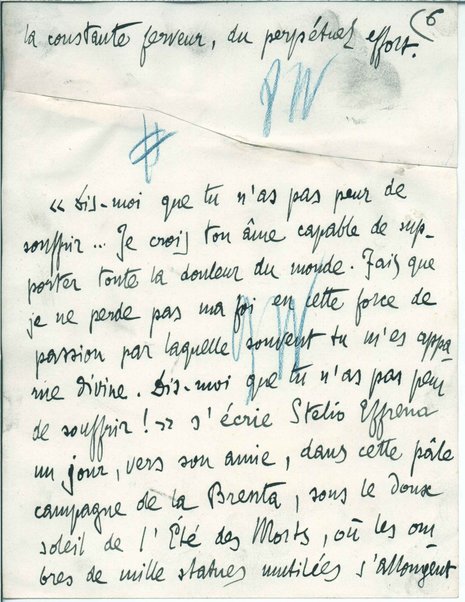 (6
la constante ferveur, du perpétuel effort.
#
« Dis-moi que tu n'as pas peur de
souffrir... Je crois ton âme capable de sup-
porter toute la douleur du monde. Fais que
je ne perde pas ma foi en cette force de
passion par laquelle souvent tu m'es appa
rue divine. Dis-moi que tu n'as pas peur
de souffrir ! » s'écrie Stelio Effrena
un jour, vers son amie, dans cette pâle
campagne de la Brenta, sous le doux
soleil de l'Eté des Morts, où les om
bres de mille statues mutilées s'allongent